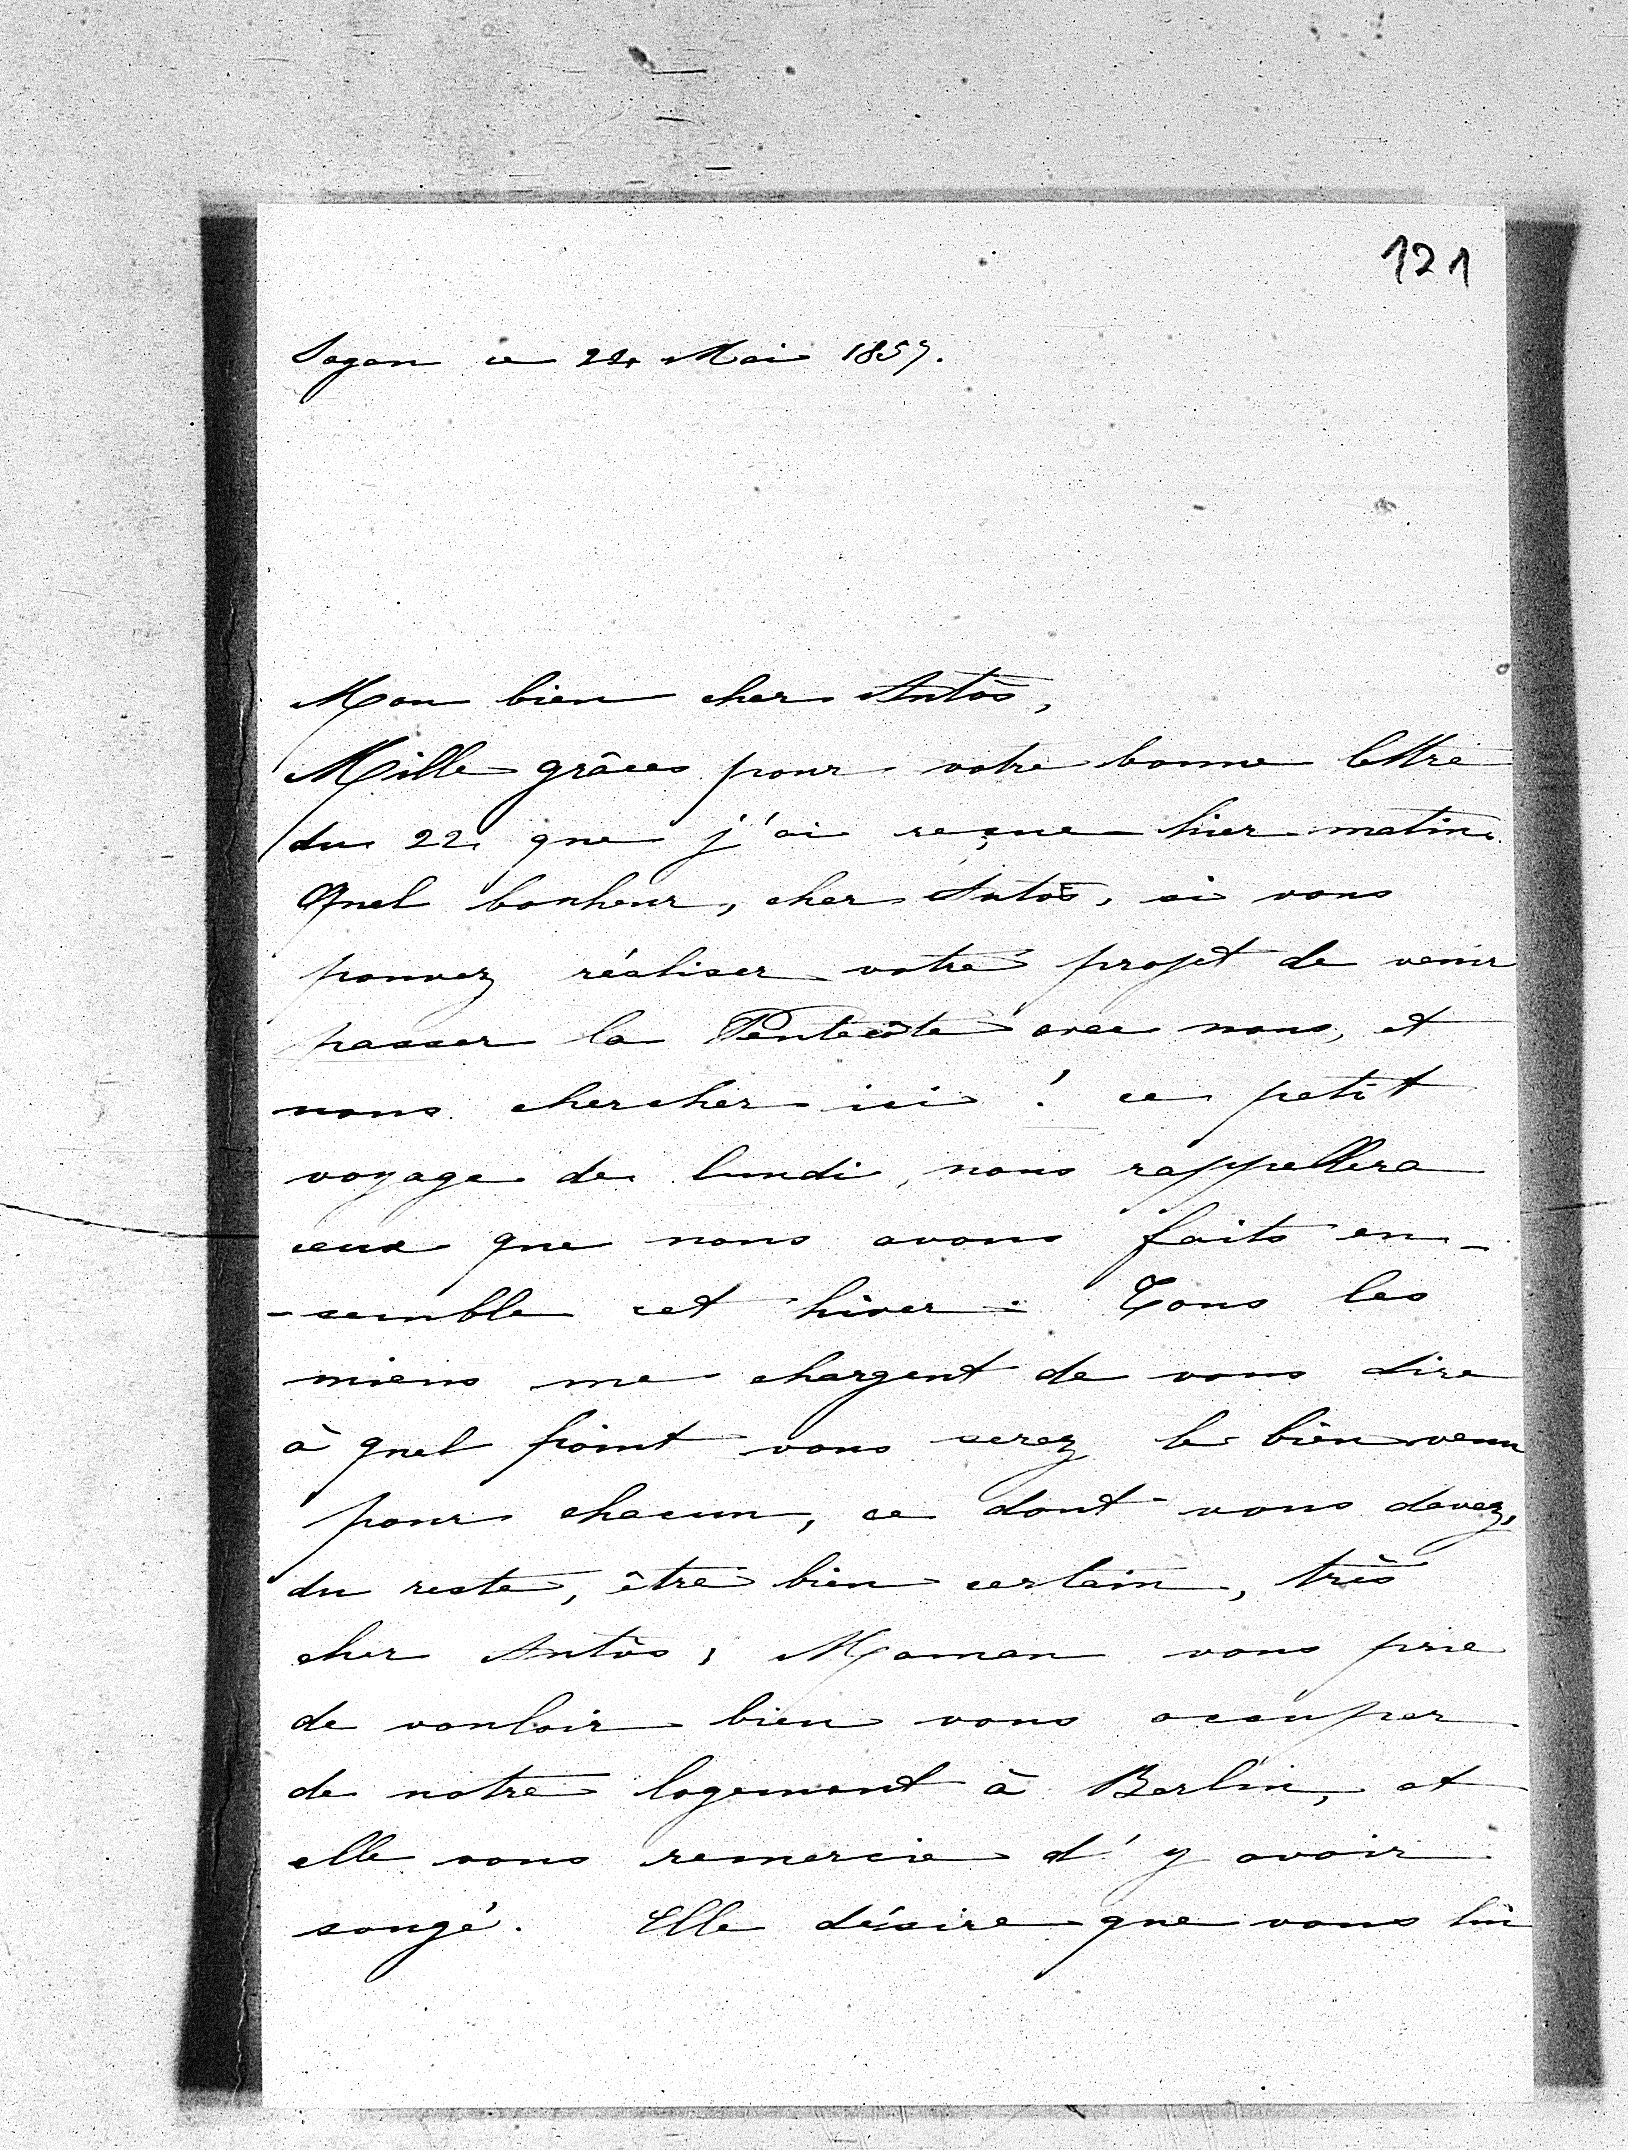 121
Sagan ce 24 Mai 1857.
Mon bien cher Antôs,
Mille grâces pour votre bonne lettre
du 22 que j'ai reçue hier matin.
Quel bonheur, cher Antôs, si vous
pouvez réaliser votre projet de venir
passer la Pentecôte avec nous, et
nous chercher ici ! ce petit
voyage de lundi, nous rappellera
ceux que nous avons faits en-
-semble cet hiver. Tous les
miens me chargent de vous dire
à quel point vous serez le bien venu
pour chacun, ce dont vous devez,
du reste, être bien certain, très
cher Antôs, Maman vous prie
de vouloir bien vous occuper
de notre logement à Berlin, et
elle vous remercie d'y avoir
songé. Elle désire que vous lui